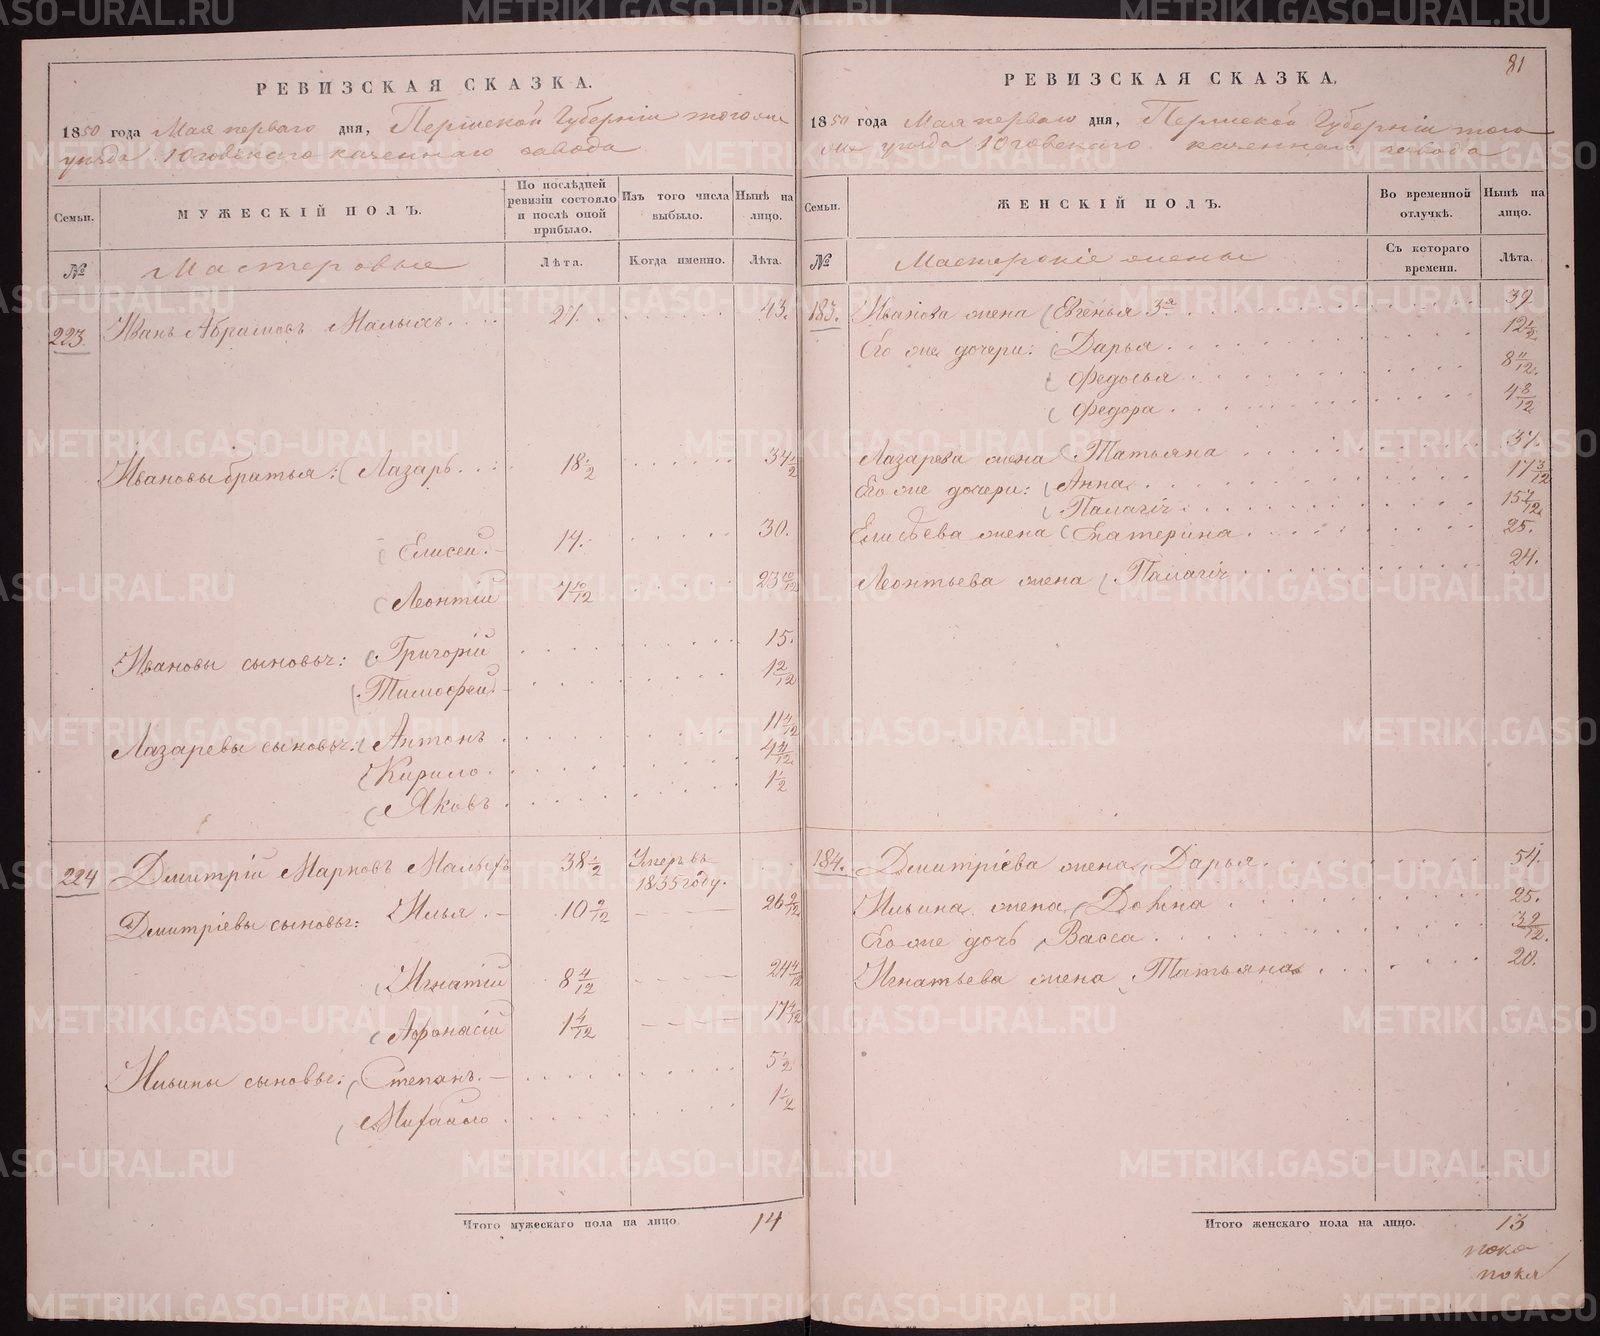 РЕВИЗСКАЯ СКАЗКА.
1850 года Мая перваго дня, Пермской Губерніи того же
уѣзда Юговскаго казеннаго завода
Семьи.
МУЖЕСКІЙ ПОЛЪ.
По послѣдней ревизіи состояло и послѣ оной прибыло.
Изъ того числа выбыло.
Нынѣ на лицо.
№
Мастеровые
Лѣта.
Когда именно.
Лѣта.
223. Иванъ Абрамовъ Малыхъ 27. 43.
Ивановы братья: Лазарь 18 1/2 34 1/2
Елисей 14. 30.
Леонтій 7 10/12 23 10/12
Ивановы сыновья: Григорій 15.
Тимофей 1 2/12
Лазаревы сыновья: Антонъ 11 4/12
Кирило 4 4/12
Яковъ 1/2
224 Дмитрій Марковъ Малыхъ 38 1/2 Умеръ въ
1835 году.
Дмитріевы сыновья: Илья 10 2/12 26 2/12
Игнатій 8 4/12 24 4/12
Афонасій 1 4/12 17 4/12
Ильины сыновья: Степанъ 5 1/2
Михайло 1 1/2
Итого мужескаго пола на лицо 14
81
РЕВИЗСКАЯ СКАЗКА,
1850 года Мая перваго дня, Пермской Губерніи того
же уѣзда Юговскаго казеннаго завода
Семьи.
ЖЕНСКІЙ ПОЛЪ.
Во временной отлучкѣ.
Нынѣ на лицо.
№
Мастерскіе жены
Съ котораго времени.
Лѣта.
183. Иванова жена Евгенья 3я 39
Его же дочери: Дарья 12 1/2
Федосья 8 11/12
Федора 4 8/12
Лазарева жена Татьяна 37.
Его же дочери: Анна 17 3/12
Палагія 15 7/12
Елисѣева жена Екатерина 25.
Леонтьева жена Палагія 24.
184. Дмитріева жена Дарья 54.
Ильина жена 25.
Его же дочь Васса 3 2/12
Игнатьева жена Татьяна 20.
Итого женскаго пола на лицо. 13
METRIKI.GASO-URAL.RU